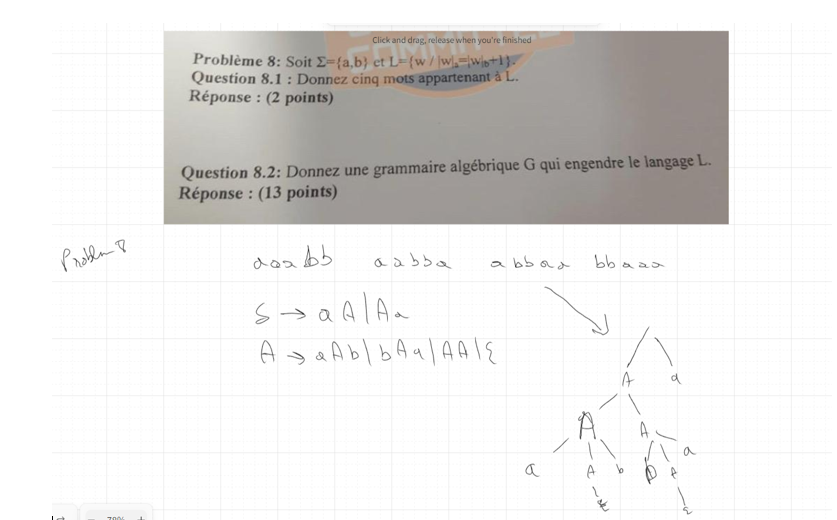 Click and drag, release when you're finished
Problème 8: Soit Σ={a,b} et L={w / |w|a=|w|b+1}.
Question 8.1 : Donnez cinq mots appartenant à L.
Réponse : (2 points)
Question 8.2: Donnez une grammaire algébrique G qui engendre le langage L.
Réponse : (13 points)
Problem 8
aaabb aabba abbaa bbaaa
S → aA|Aa
A → aAb|bAa|AA|ε
A a
A A
a A b b A a
ε ε
78%